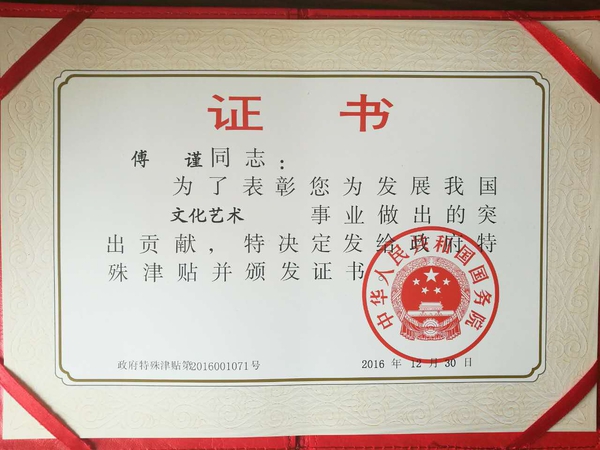 证书
傅 谨同志：
为了表彰您为发展我国
文化艺术 事业做出的突
出贡献，特决定发给政府特
殊津贴并颁发证书
中华人民共和国国务院
政府特殊津贴第2016001071号
2016 年 12 月 30 日